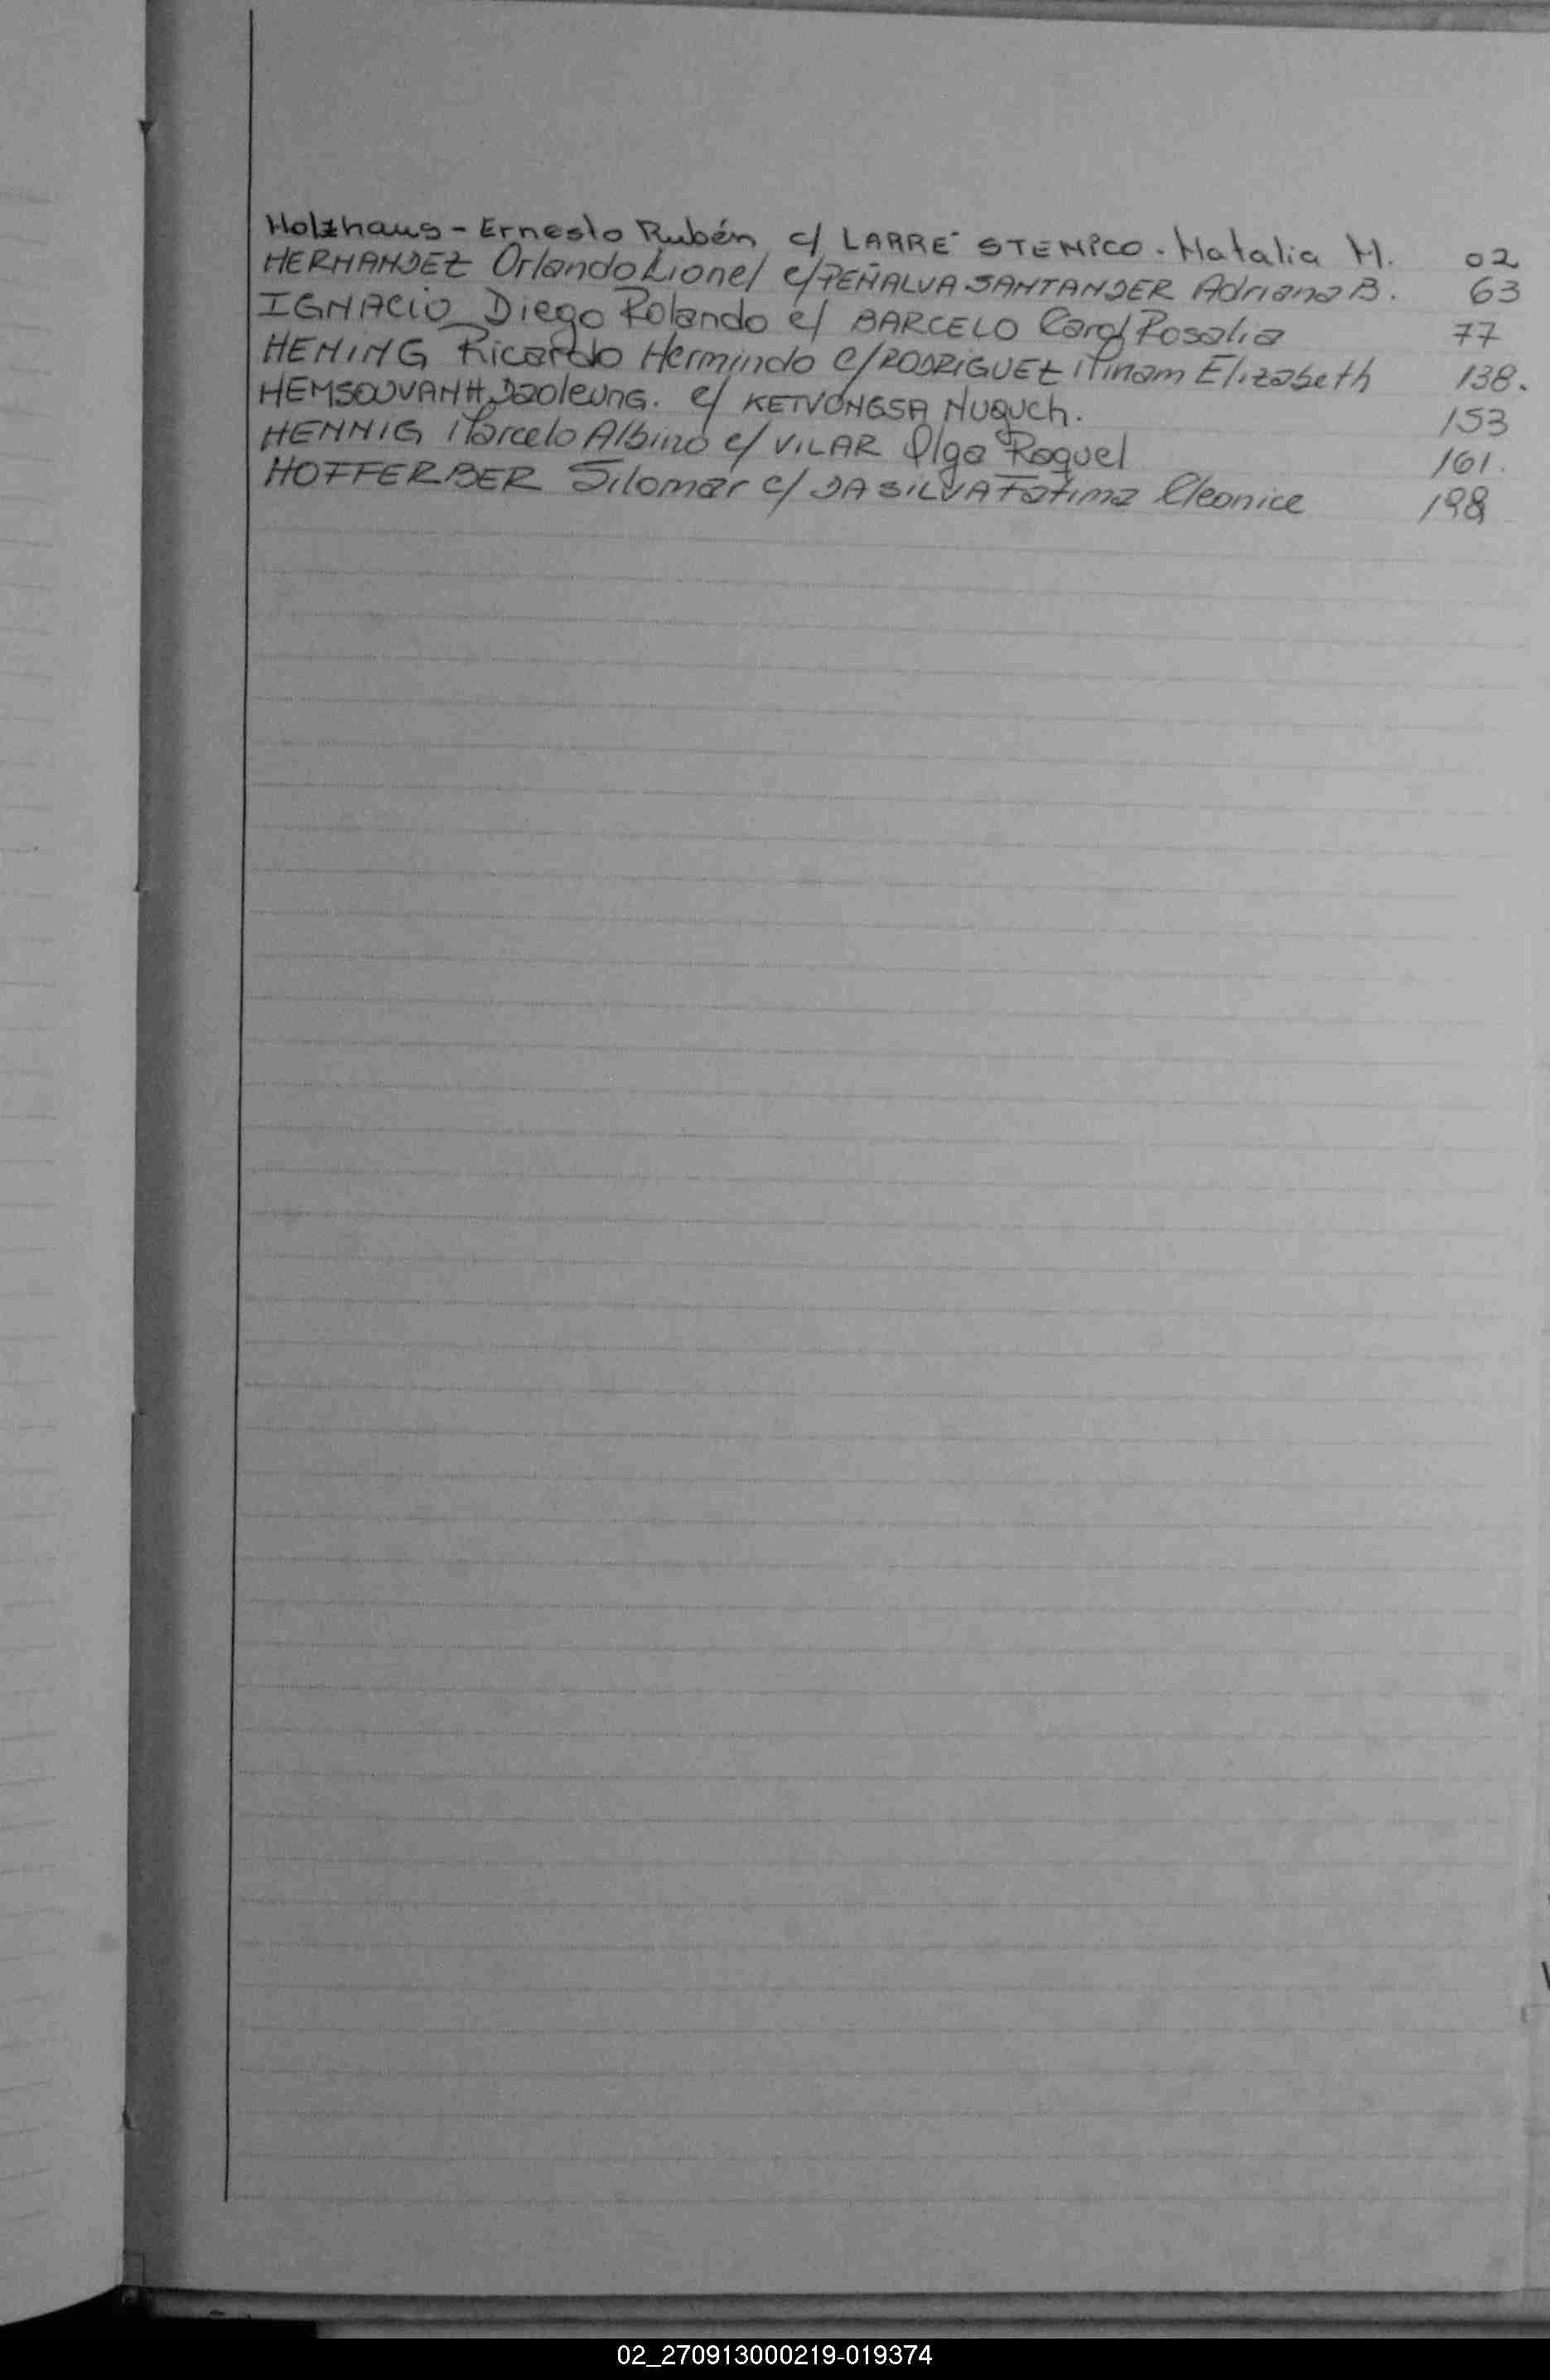 Holzhaus - Ernesto Rubén c/ LARRE STENICO. Natalia M. 02
HERNANDEZ Orlando Lionel c/ PEÑALVA SANTANDER Adriana B. 63
IGNACIO Diego Rolando c/ BARCELO Carol Rosalia 77
HENING Ricardo Hermindo c/ RODRIGUEZ Miriam Elizabeth 138.
HEMSOUVANH Daoleung. c/ KETVONGSA Nuquch. 153
HENNIG Marcelo Albino c/ VILAR Olga Raquel 161.
HOFFERBER Silomar c/ DA SILVA Fatima Cleonice 198
02_270913000219-019374